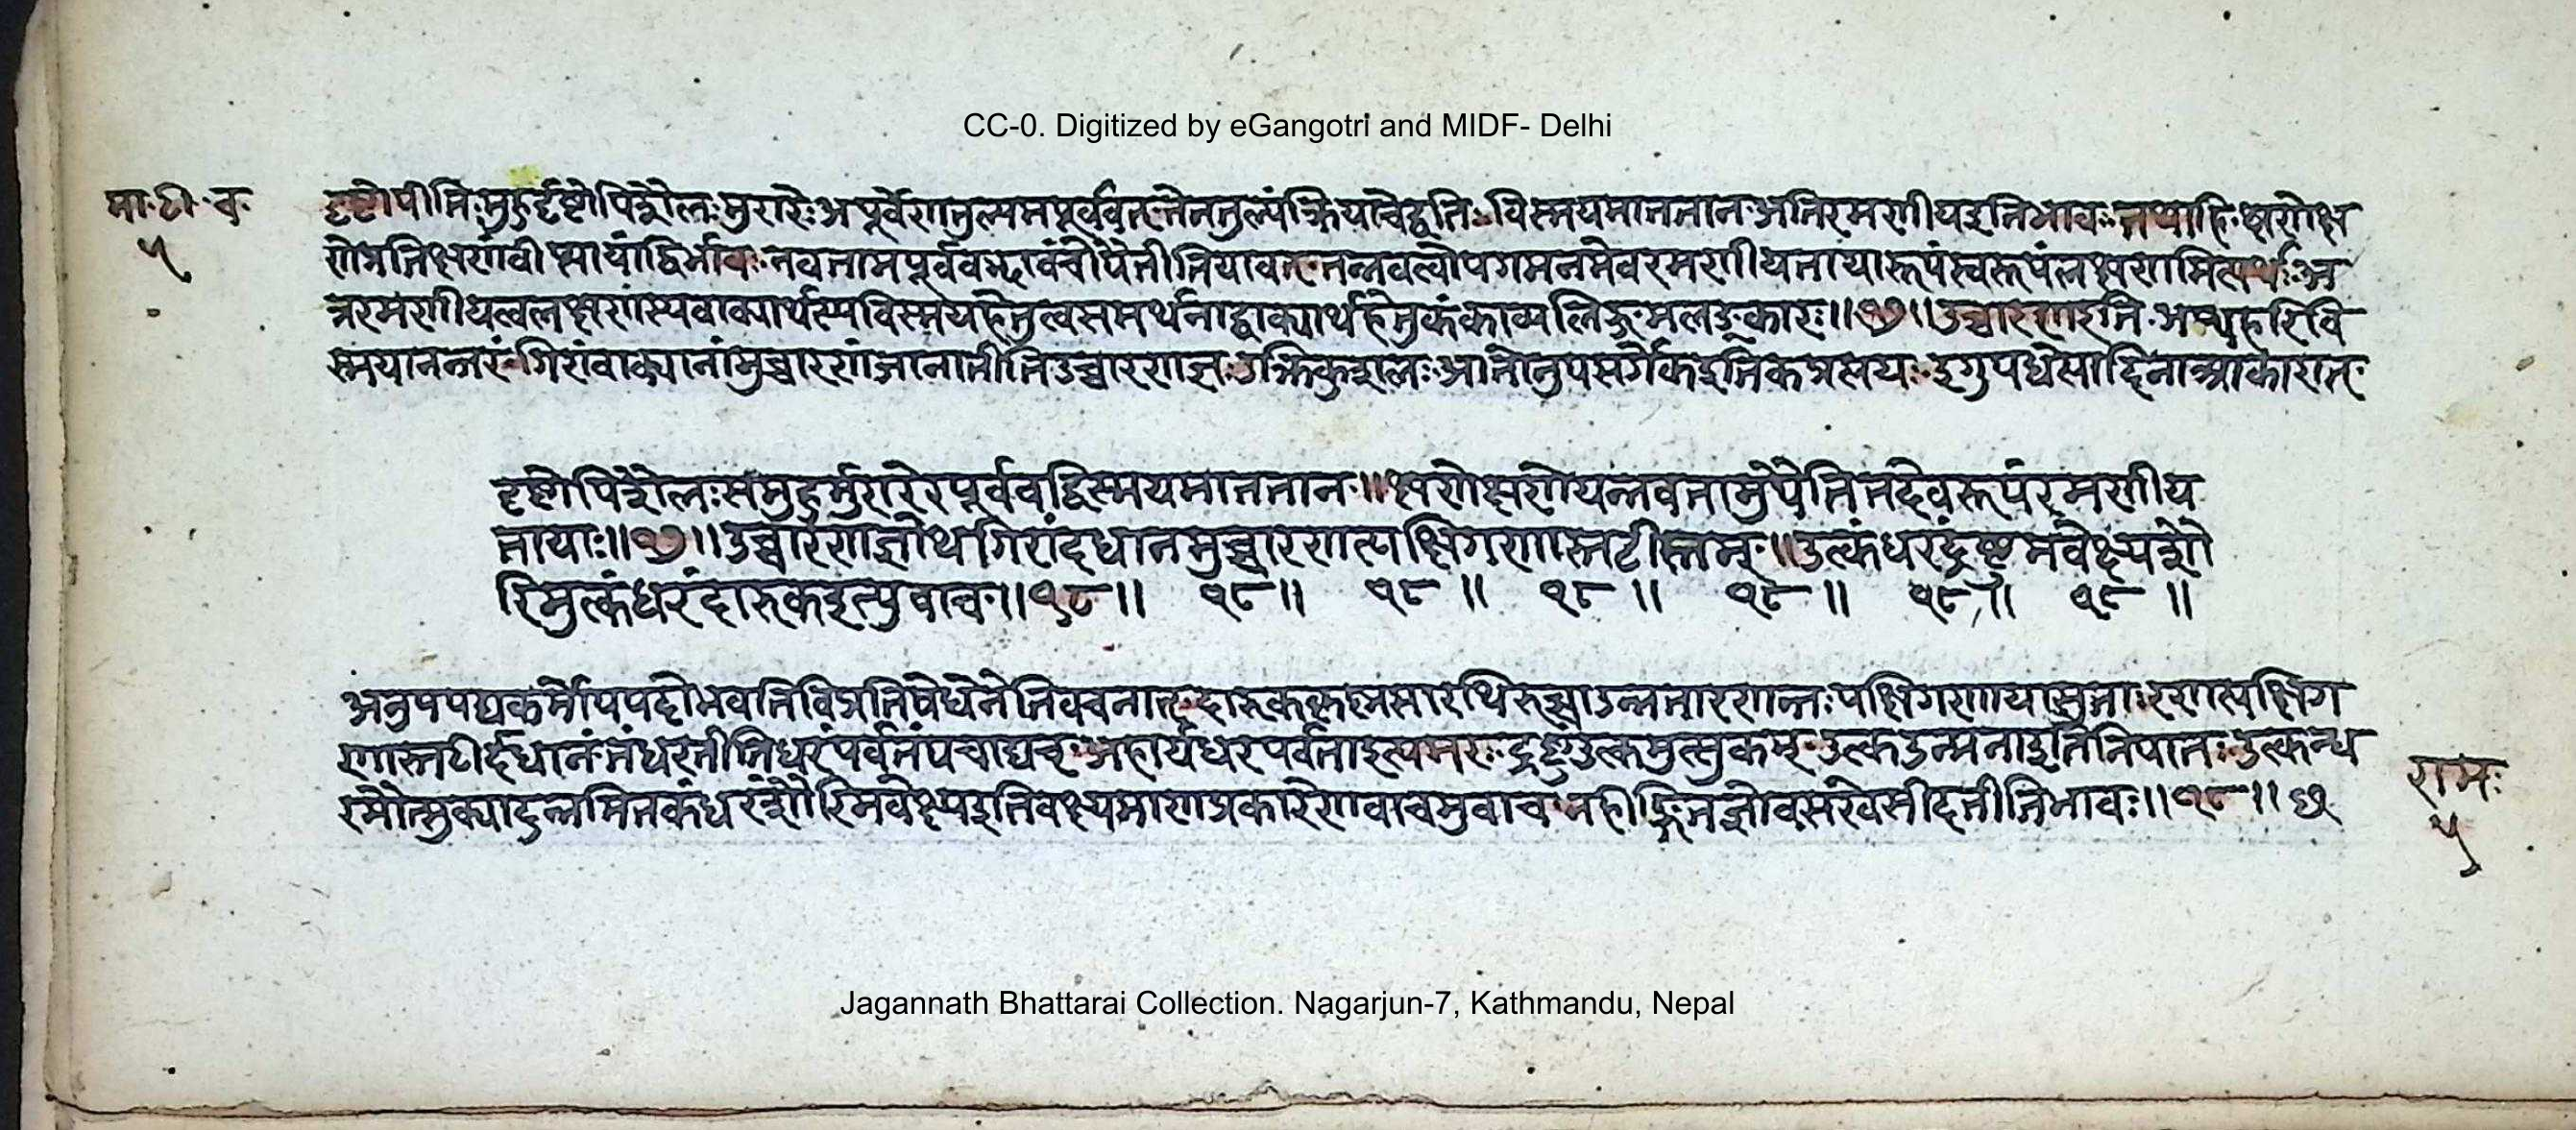 CC-0. Digitized by eGangotri and MIDF- Delhi
मा.टी.च.
५
दृष्टोपीति मुहुर्दृष्टोपि शैलः मुरारेः अपूर्वेणतुल्यमपूर्ववत् तेनतुल्यंक्रियाचेद्वतिः विस्मयमाततान अतिरमणीयइतिभावः तथाहि क्षणेक्ष
णेप्रतिक्षणंवीप्सायांद्विर्भावः नवतामपूर्ववद्भावंचोपैतीतियावत् तन्नवत्वोपगमनमेवरमणीयतायारूपंस्वरूपंलक्षणमित्यर्थः अ
त्ररमणीयत्वलक्षणस्यवाक्यार्थस्यविस्मयहेतुत्वसमर्थनाद्वाक्यार्थहेतुकंकाव्यलिङ्गमलङ्कारः॥१७॥उच्चारणइति अथहरिवि
स्मयानन्तरं गिरांवाक्यानांमुच्चारणंजानातीतिउच्चारणज्ञः उक्तिकुशलः आतोनुपसर्गेकइतिकप्रत्ययः इगुपधेत्यादिनाआकारात्
दृष्टोपिशैलःसमुहुर्मुरारेरपूर्ववद्विस्मयमाततान॥क्षणेक्षणेयन्नवतामुपैतितदेवरूपंरमणीय
तायाः॥१७॥उच्चारणज्ञोथगिरांदधानमुच्चारणत्पक्षिगणास्तटीस्तम्॥उत्कंधरंद्रष्टुमवेक्ष्यशौ
रिमुत्कंधरंदारुकइत्युवाच॥१८॥ १८॥ १८॥ १८॥ १८॥ १८॥ १८॥
अनुपपद्यकर्मोपपदोभवतिविप्रतिषेधेनेतिवचनात् दारुकः कृष्णसारथिः उच्चा उन्नतारणन्तः पक्षिगणायासुताः रणत्पक्षिग
णास्तटीर्दधानं तंधरतीतिधरंपर्वतंपचाद्यच् अहार्यधरपर्वताइत्यमरः द्रष्टुंउत्कमुत्सुकम् उत्कउन्मनाइतिनिपातः उत्कन्ध
रमौत्सुक्यादुन्नमितकंधरंशौरिमवेक्ष्यइतिवक्ष्यमाणप्रकारेणवाचमुवाच नहीङ्गितज्ञोवसरेवसीदतीतिभावः॥१८॥
रामः
५
Jagannath Bhattarai Collection. Nagarjun-7, Kathmandu, Nepal